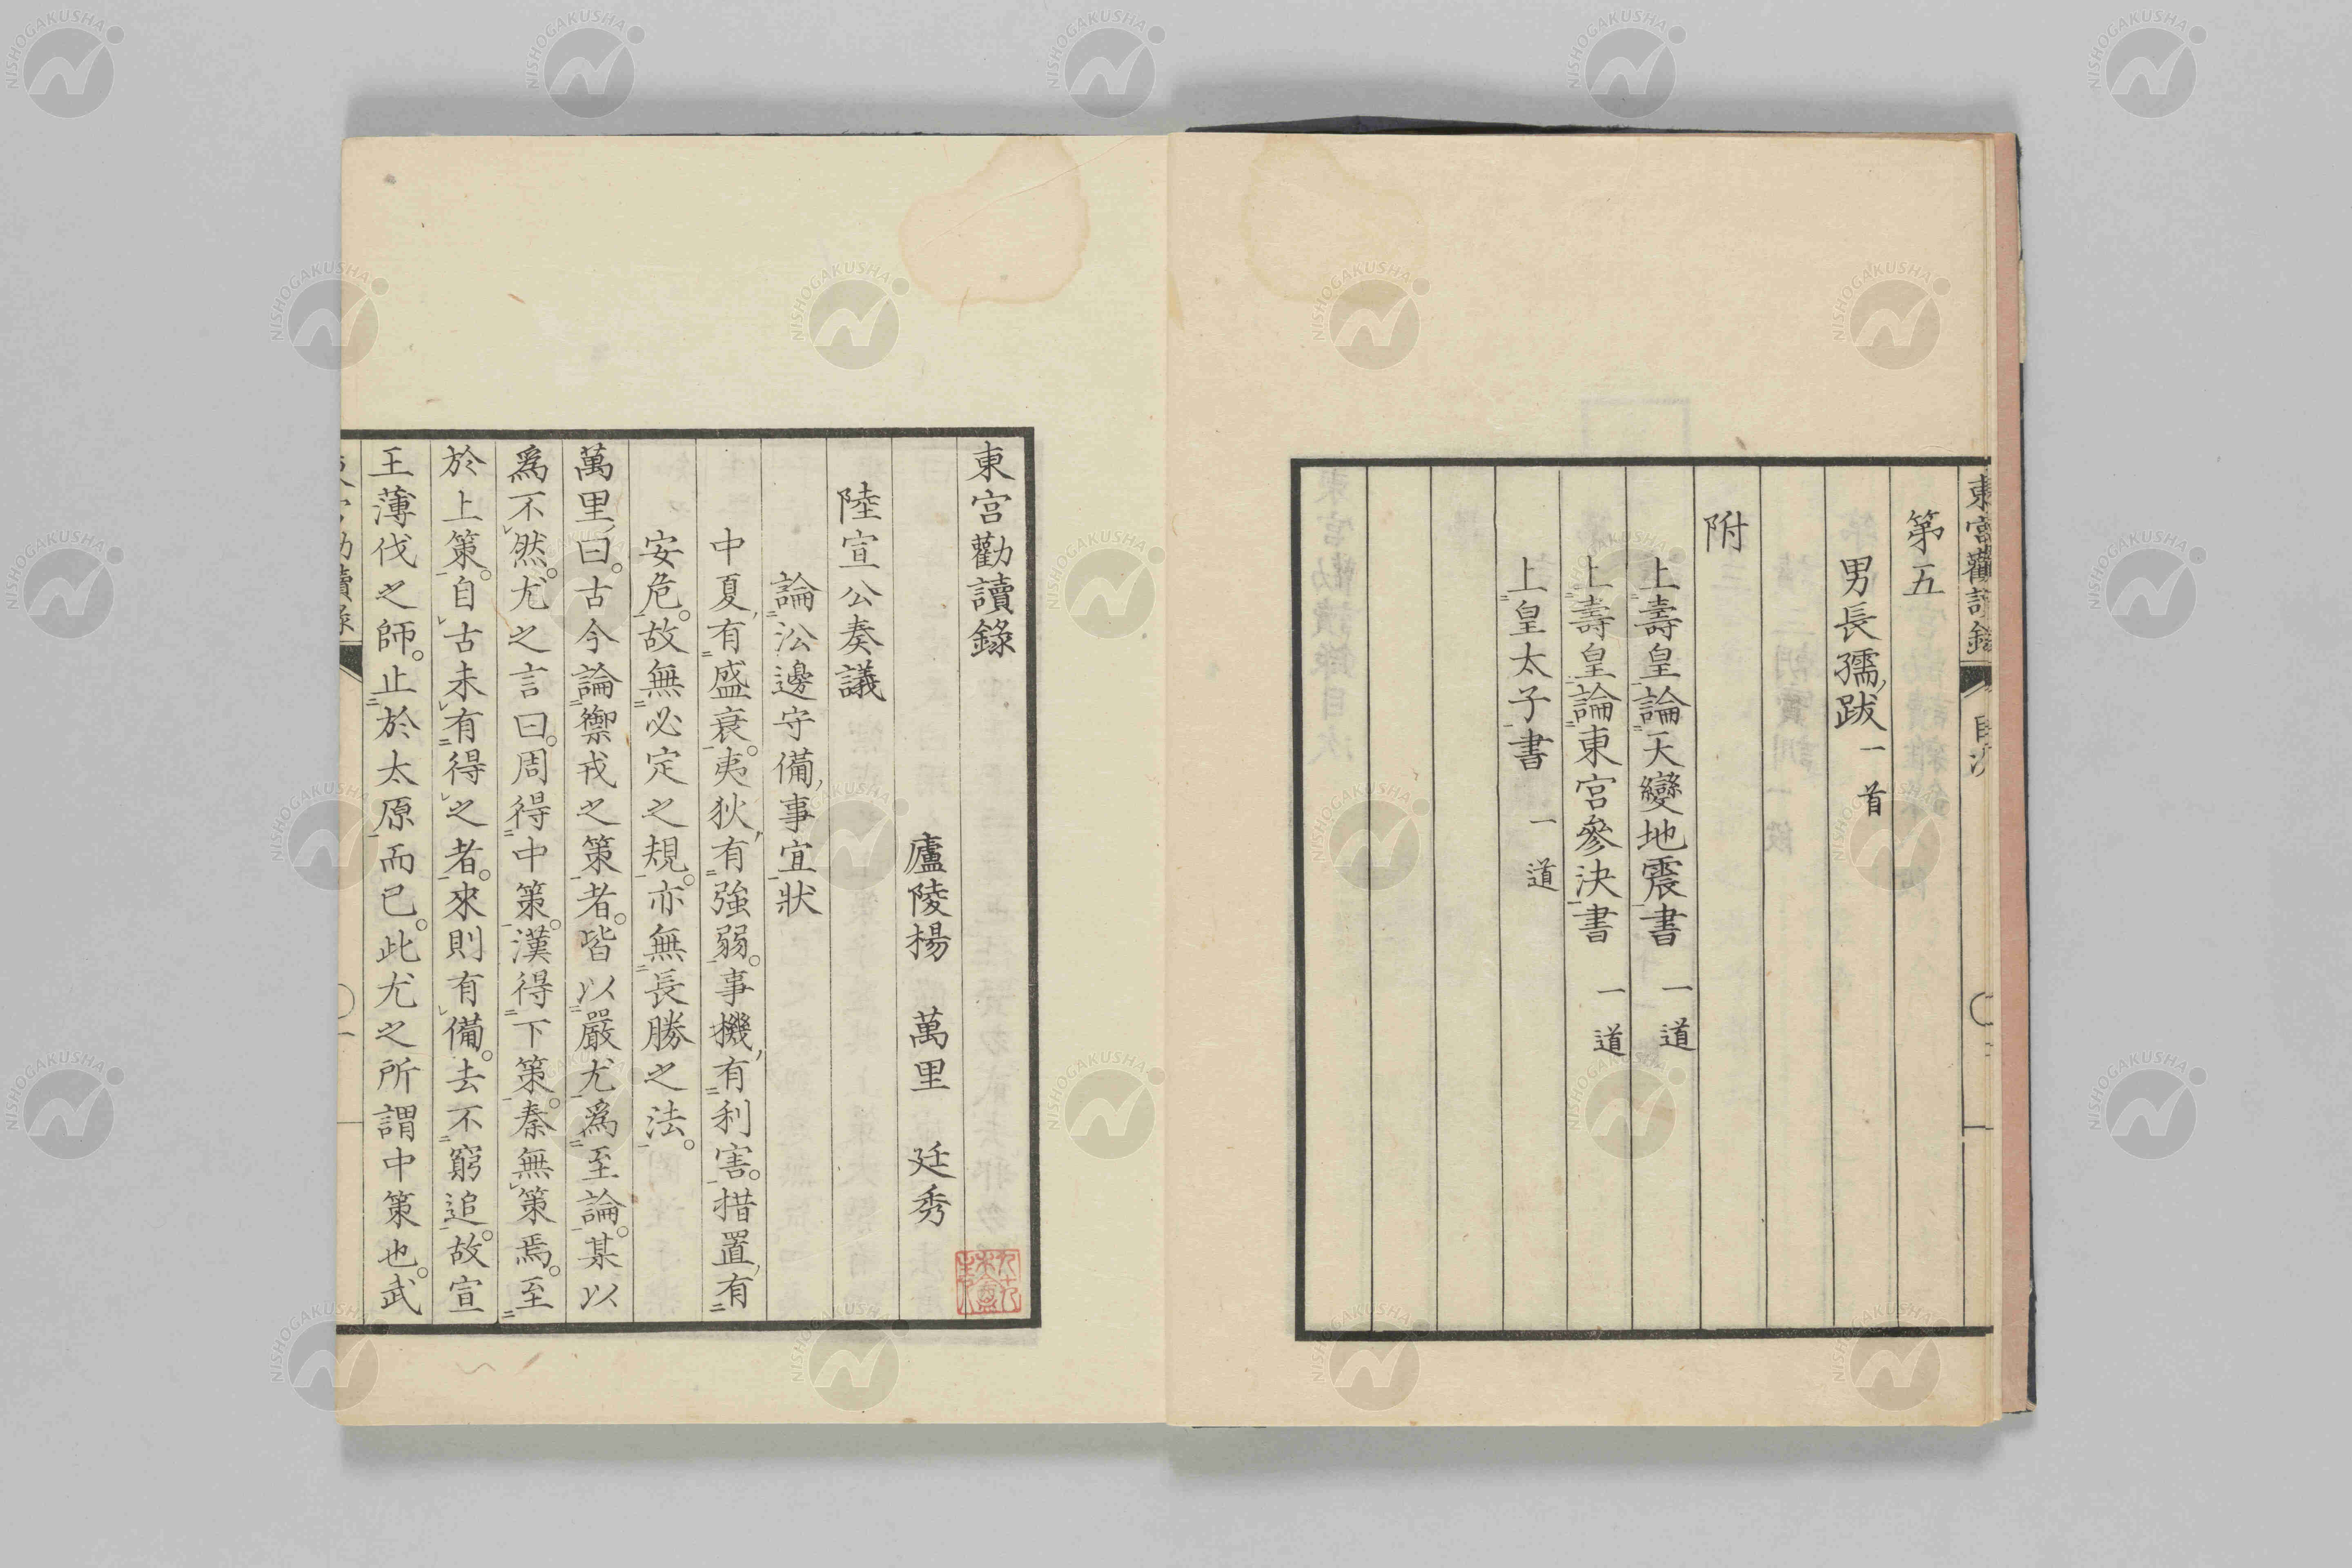 東宮勸讀錄
目次
第五
男長孺跋 一首
附
上壽皇論天變地震書 一道
上壽皇論東宮參決書 一道
上皇太子書 一道
東宮勸讀錄
廬陵楊 萬里 廷秀
陸宣公奏議
論沿邊守備事宜狀
中夏有盛衰。夷狄有強弱。事機有利害。措置有
安危。故無必定之規。亦無長勝之法。
萬里曰。古今論禦戎之策者。皆以嚴尤爲至論。某以
爲不然。尤之言曰。周得中策。漢得下策。秦無策焉。至
於上策。自古未有得之者。來則有備。去不窮追。故宣
王薄伐之師。止於太原而已。此尤之所謂中策也。武
NISHOGAKUSHA